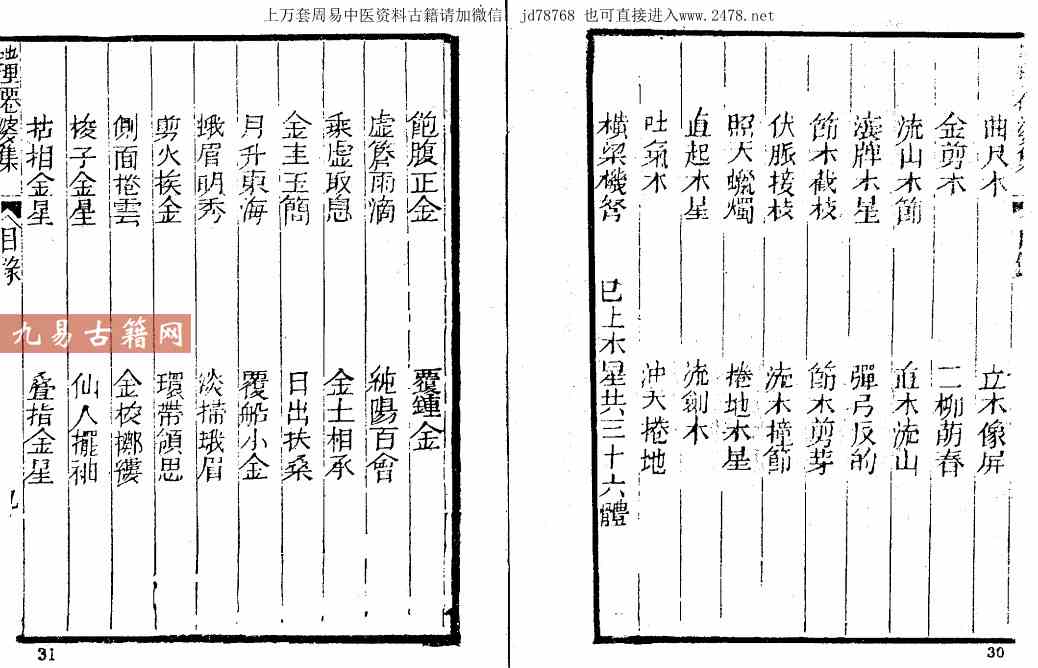 上万套周易中医资料古籍请加微信 jd78768 也可直接进入www.2478.net
曲尺木 立木像屏
金剪木 二柳萌春
流山木節 直木流山
湊牌木星 彈弓反的
節木截枝 節木剪芽
伏脈接枝 流木撞節
照天蠟燭 捲地木星
直起木星 流劍木
吐氣木 沖天捲地
橫梁機弩 已上木星共三十六體
30
飽腹正金 覆鐘金
虛簷雨滴 純陽百會
乘虛取息 金土相承
金圭玉簡 日出扶桑
月升東海 覆船小金
蛾眉明秀 淡掃蛾眉
剪火挨金 環帶頷思
側面捲雲 金梭擲
梭子金星 仙人擺袖
拈相金星 疊指金星
目录 九
31
九易古籍网